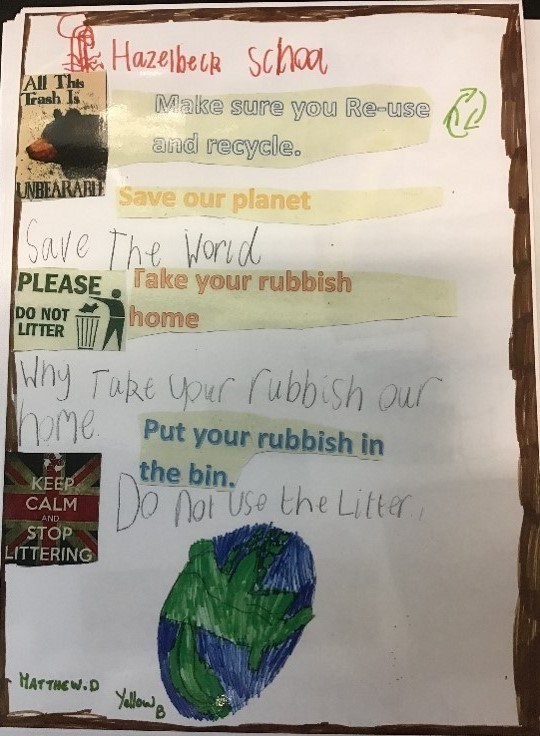 Hazelbeck School
All This
Trash Is
UNBEARABLE
Make sure you Re-use
and recycle.
Save our planet
Save The World
PLEASE
DO NOT
LITTER
Take your rubbish
home
Why Take your rubbish our
home.
Put your rubbish in
the bin.
KEEP
CALM
AND
STOP
LITTERING
Do not use the Litter.
MATTHEW.D
Yellow B